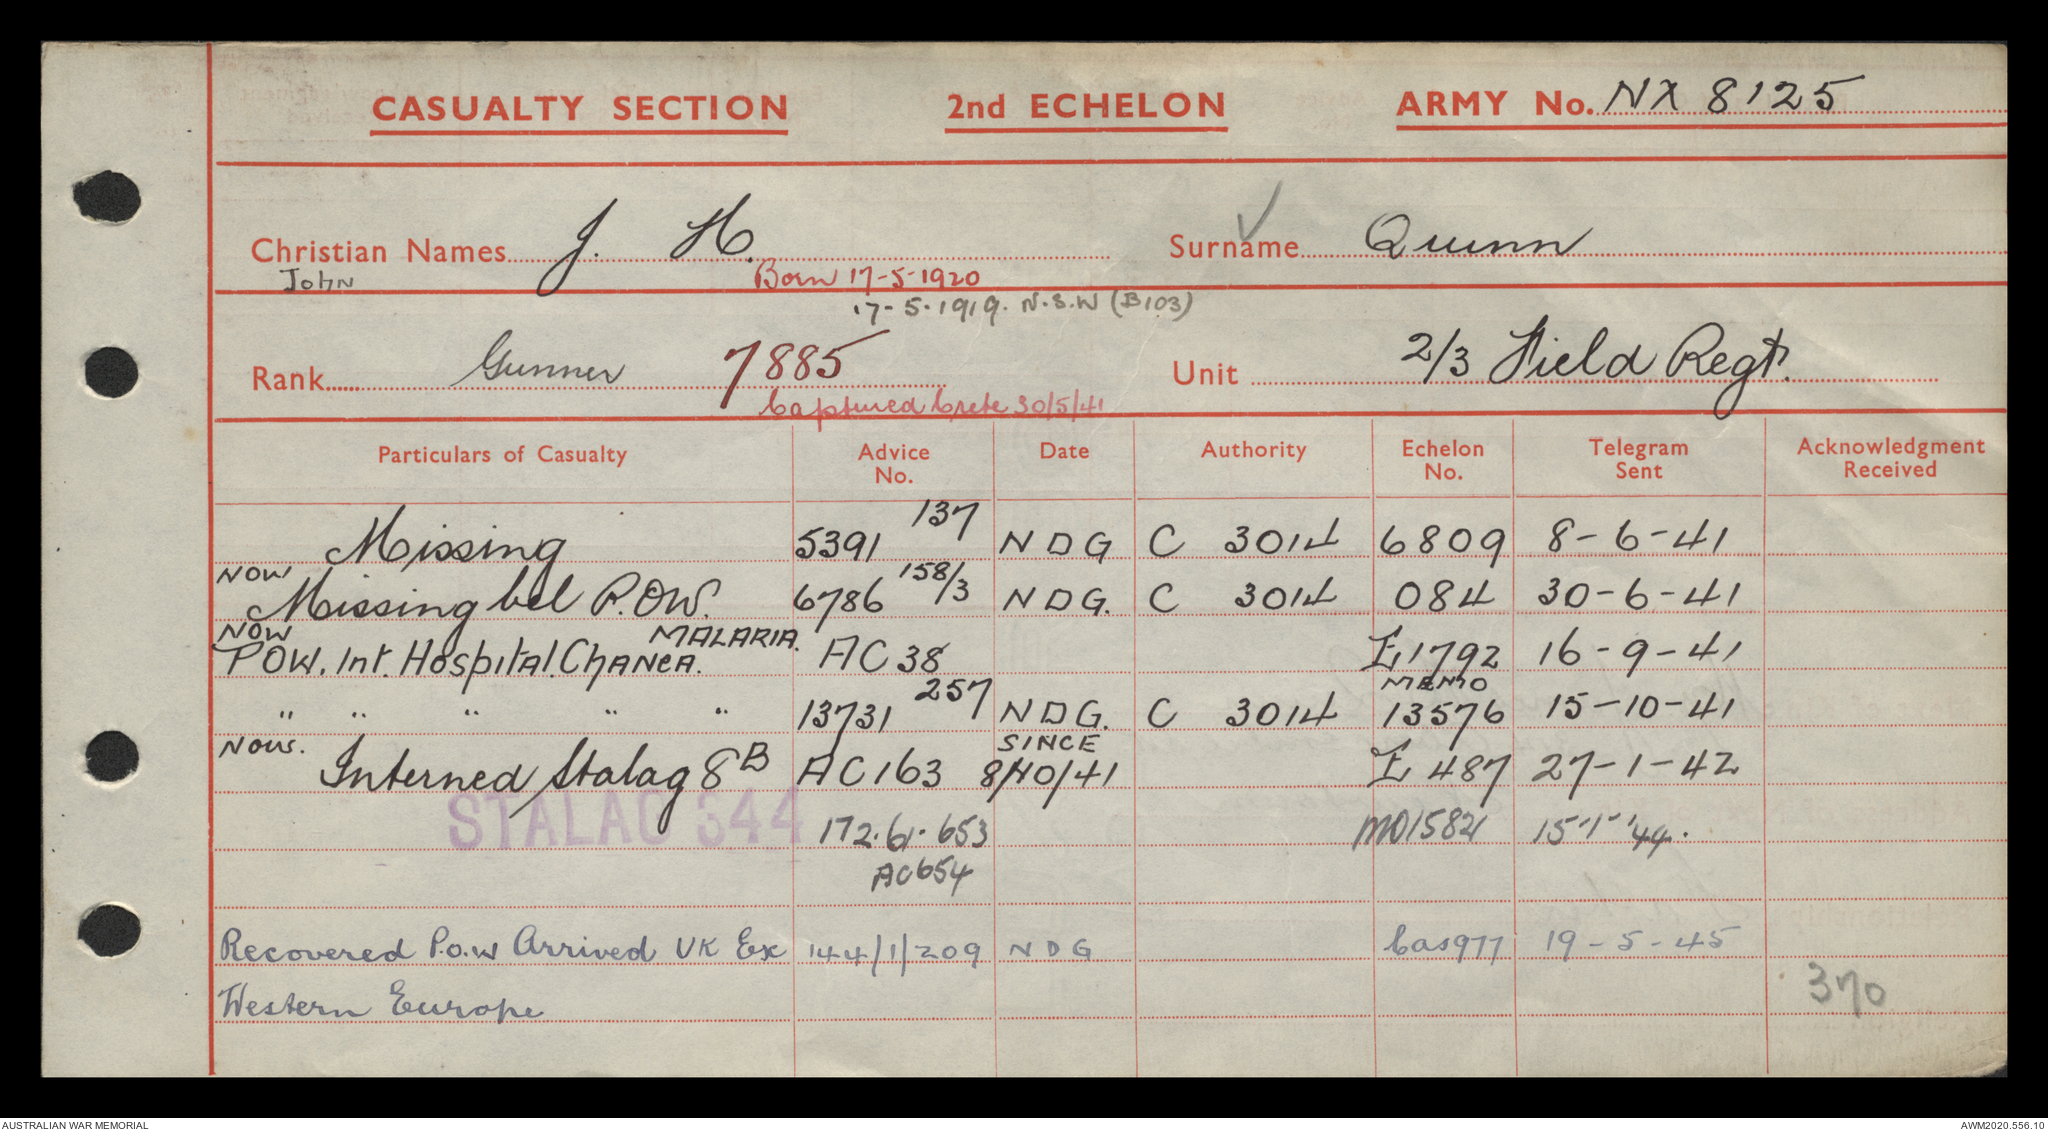 CASUALTY SECTION 2nd ECHELON ARMY No. NX 8125
Christian Names J. H. Surname Quinn
John Born 17-5-1920
17-5-1919. N.S.W (B103)
Rank Gunner 7885 Unit 2/3 Field Regt.
Captured Crete 30/5/41
Particulars of Casualty Advice No. Date Authority Echelon No. Telegram Sent Acknowledgment Received
Missing 5391 137 NDG C 3014 6809 8-6-41
NOW Missing bel P.OW. 6786 158/3 NDG. C 3014 084 30-6-41
NOW POW. Int. Hospital. Chanea. MALARIA. AC 38 E1792 16-9-41
" " " " " 13731 257 NDG. C 3014 MEMO 13576 15-10-41
Now. Interned Stalag 8B AC163 SINCE 8/10/41 E 487 27-1-42
STALAG 344 172.61.653 MO1582 15-1-'44.
AC654
Recovered P.o.w Arrived UK Ex 144/1/209 NDG Cas977 19-5-45
Western Europe 370
AUSTRALIAN WAR MEMORIAL AWM2020.556.10